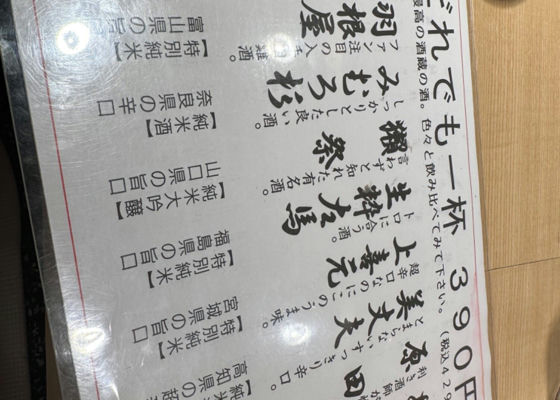 どれでも一杯 390円
(税込429
最高の酒蔵の酒。色々と飲み比べてみて下さい。
羽根屋
ファン注目の入手
難酒。
【特別純米】
富山県の旨口
みむろ杉
しっかりとした良い酒。
【純米酒】
奈良県の辛口
獺祭
言わずと知れた有名酒。
【純米大吟醸】
山口県の旨口
生粋左馬
トロに合う酒。
【特別純米】
福島県の旨口
上喜元
超辛口なのにこのうま味。
【特別純米】
宮城県の旨口
美丈夫
とまらないすっきり辛口。
【純米
高知県の超
原田
利き酒師が